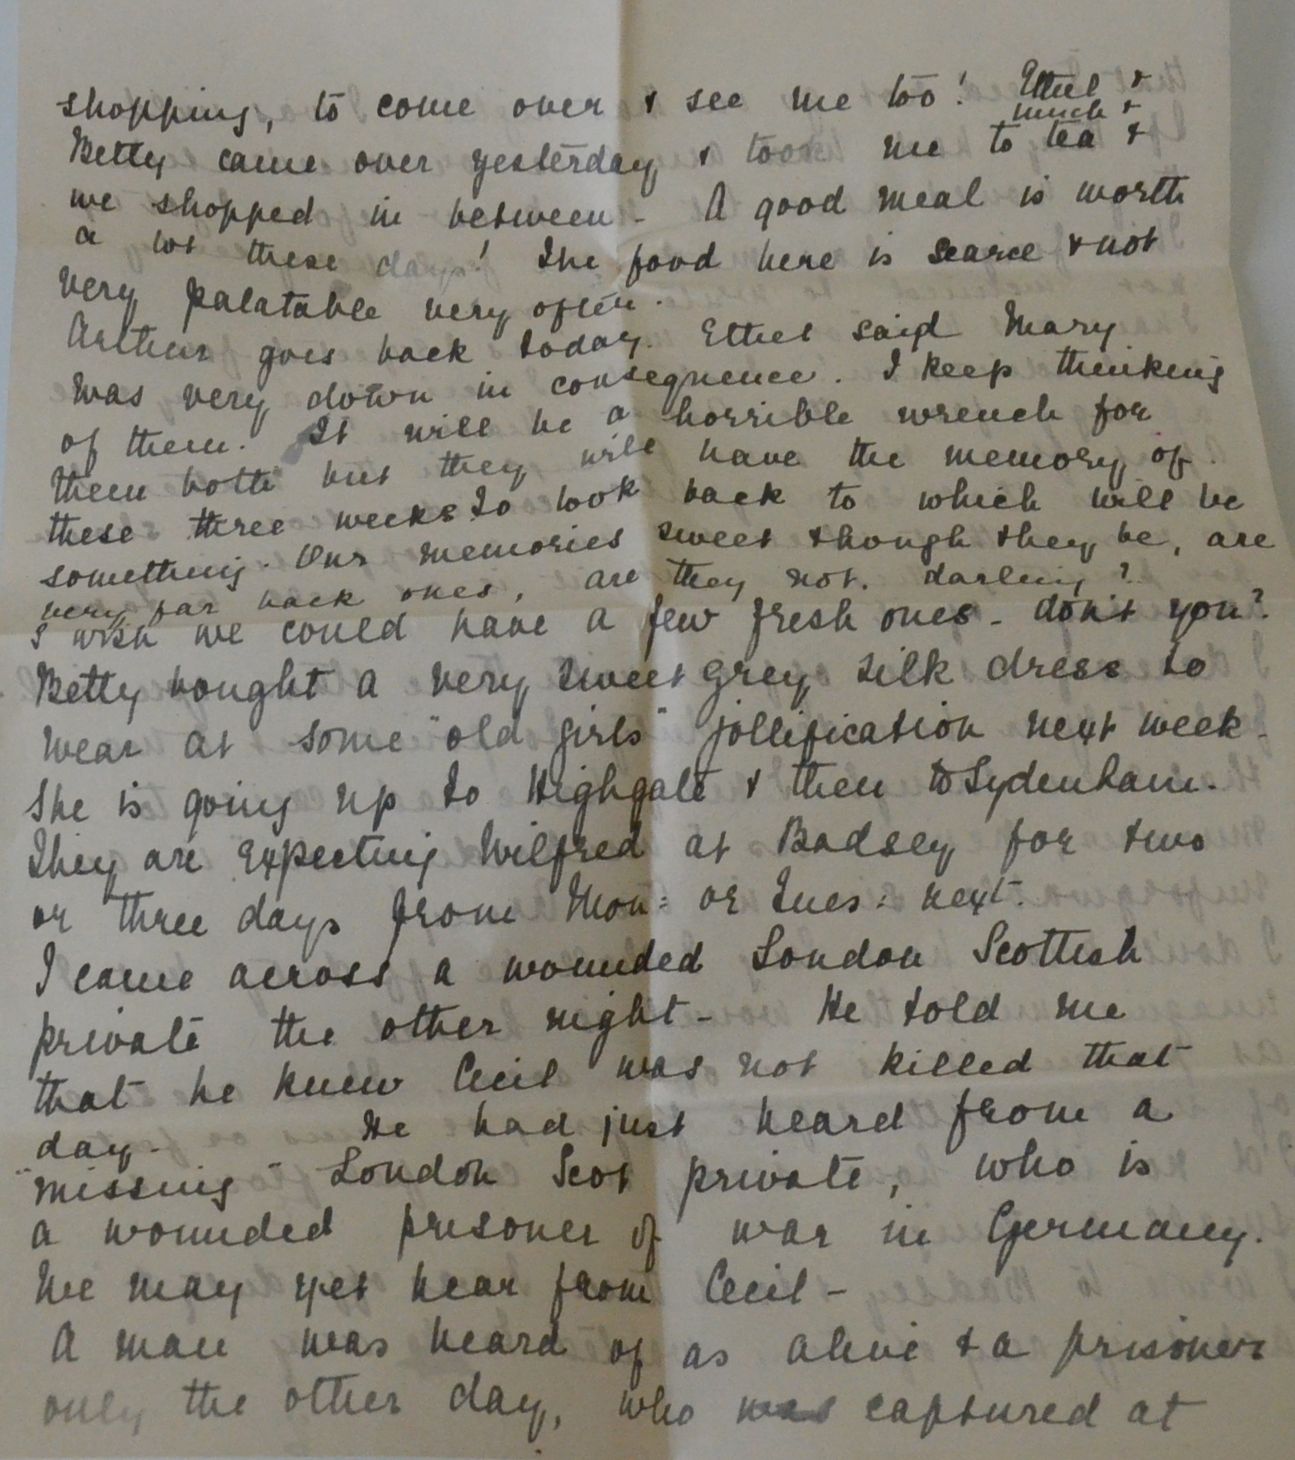 shopping, to come over & see me too! Ethel &
Betty came over yesterday & took me to lunch & tea &
we shopped in between - A good meal is worth
a lot these days! The food here is scarce & not
very palatable very often.
Arthur goes back today. Ethel said Mary
was very down in consequence. I keep thinking
of them. It will be a horrible wrench for
them both but they will have the memory of
these three weeks to look back to which will be
something. Our memories sweet though they be, are
very far back ones, are they not, darling?
I wish we could have a few fresh ones - don't you?
Betty bought a very sweet grey silk dress to
wear at some "old girls" jollification next week -
She is going up to Highgate & then to Sydenham.
They are expecting Wilfred at Badsey for two
or three days from Mon: or Tues: next.
I came across a wounded London Scottish
private the other night - He told me
that he knew Cecil was not killed that
day - He had just heard from a
"missing" London Scot private, who is
a wounded prisoner of war in Germany.
We may yet hear from Cecil -
A man was heard of as alive & a prisoner
only the other day, who was captured at